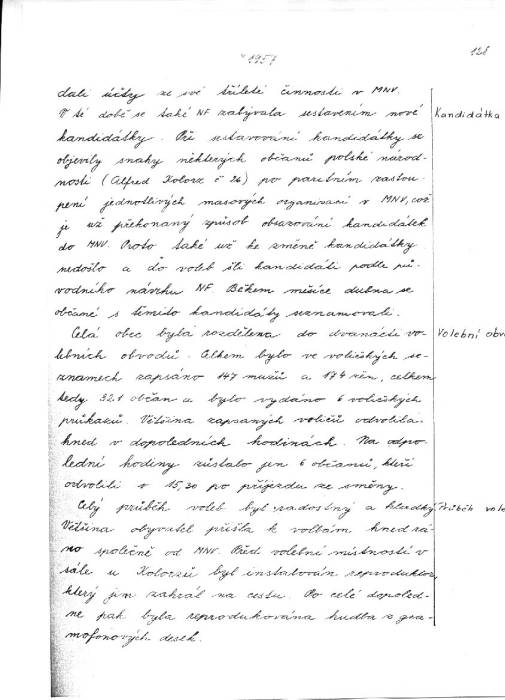 1957
128
dali účty ze své tříleté činnosti v MNV.
V té době se také NF zabývala sestavením nové
Kandidátka
kandidátky. Při sestavování kandidátky se
objevily snahy některých občanů polské národ-
nosti (Alfred Kolorz č 26) po paritním zastou-
pení jednotlivých masových organisací v MNV, což
je už překonaný způsob obsazování kandidátek
do MNV. Proto také už ke změně kandidátky
nedošlo a do voleb šli kandidáti podle pů-
vodního návrhu NF. Během měsíce dubna se
občané s těmito kandidáty seznamovali.
Celá obec byla rozdělena do dvanácti vo-
Volební obv
lebních obvodů. Celkem bylo ve voličských se-
znamech zapsáno 147 mužů a 174 žen, celkem
tedy 321 občan a bylo vydáno 6 voličských
průkazů. Většina zapsaných voličů odvolila
hned v dopoledních hodinách. Na odpo-
lední hodiny zůstalo jen 6 občanů, kteří
odvolili v 15,30 po příjezdu ze směny.
Celý průběh voleb byl radostný a hladký.
Průběh vole
Většina obyvatel přišla k volbám hned rá-
no společně od MNV. Před volební místností v
sále u Kolorzů byl instalován reproduktor,
který jim zahrál na cestu. Po celé dopoled-
ne pak byla reprodukována hudba z gra-
mofonových desek.